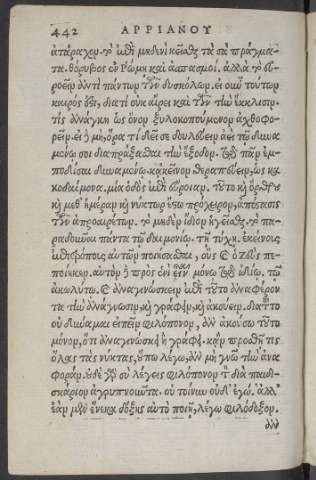 442 ΑΡΡΙΑΝΟΥ
ἀτάραχον. τὸ ἐπὶ μηδενὶ κεῖσθαι τὰ σὰ πράγμα-
τα. θόρυβος ἐν Ρώμῃ καὶ ἀσπασμοί. ἀλλὰ τὸ εὐ-
ροεῖν ἀντὶ πάντων τῶν δυσκόλων. εἰ οὖν τούτων
καιρός ἐστι, διατί οὐκ αἴρεις αὐτῶν τὴν ἔκκλισιν.
τίς ἀνάγκη ὡς ὄνον ξυλοκοπούμενον ἀχθοφο-
ρεῖν. εἰ δὲ μὴ, ὅρα ὅτι δεῖ σε δουλεύειν ἀεὶ τῷ δυνα
μένῳ σοι διαπράξασθαι τὴν ἔξοδον. τῷ πᾶν ἐμ-
ποδίσαι δυναμένῳ. κᾀκεῖνον θεραπεύειν, ὡς κα
κοδαίμονα. μία ὁδὸς ἐπὶ εὔροιαν. τοῦτο καὶ ὄρθρου
καὶ μεθ' ἡμέραν καὶ νύκτωρ ἔστω πρόχειρον, ἀπόστασις
τῶν ἀπροαιρέτων. τὸ μηδὲν ἴδιον ἡγεῖσθαι. τὸ πα-
ραδοῦναι πάντα τῷ δαιμονίῳ. τῇ τύχῃ. ἐκείνους
ἐπιτρόπους αὐτῶν ποιήσασθαι, οὓς καὶ ὁ ζεὺς πε-
ποίηκεν. αὐτὸν δὲ πρὸς ἑνὶ εἶναι μόνῳ τῷ ἰδίῳ. τῷ
ἀκωλύτῳ. καὶ ἀναγινώσκειν ἐπὶ τοῦτο ἀναφέρον
τα τὴν ἀνάγνωσιν, καὶ γράφειν, καὶ ἀκούειν. διὰ τοῦτο
οὐ δύναμαι εἰπεῖν φιλόπονον, ἂν ἀκούσω τοῦτο
μόνον, ὅτι ἀναγινώσκει ἢ γράφει. κᾂν προσθῇ τις
ὅλας τὰς νύκτας, οὔπω λέγω, ἂν μὴ γνῶ τὴν ἀνα
φοράν. οὐδὲ γὰρ σὺ λέγεις φιλόπονον τὸν διὰ παιδι-
σκάριον ἀγρυπνοῦντα. οὐ τοίνυν οὐδ' ἐγώ. ἀλλ'
ἐὰν μὲν ἕνεκα δόξης αὐτὸ ποιῇ, λέγω φιλόδοξον.
ἂν